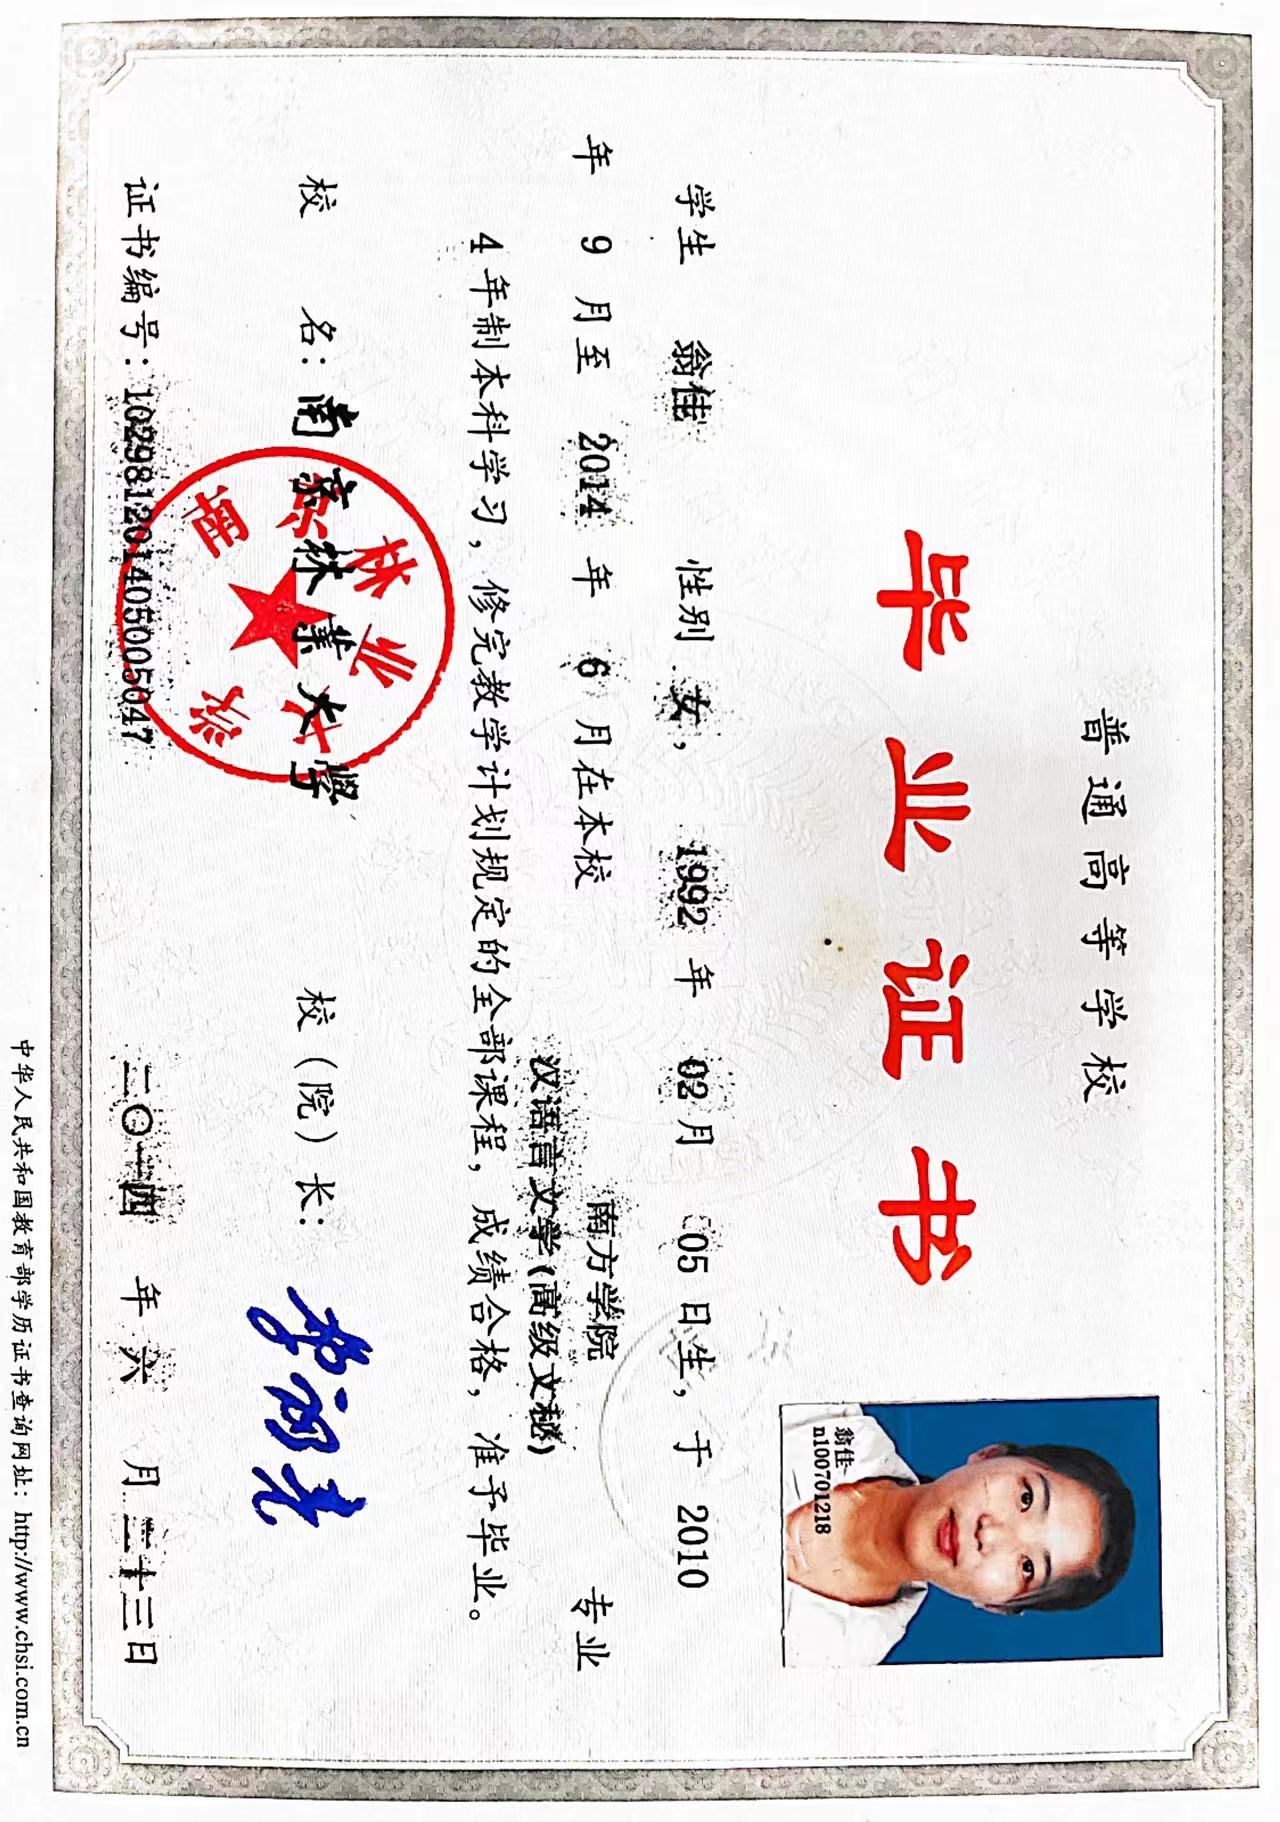 普通高等学校
毕业证书
翁佳
n100701218
学生 翁佳 性别 女， 1992 年 02月 05日生，于 2010
年 9 月至 2014 年 6 月在本校 南方学院 专业
汉语言文学(高级文秘)
4 年制本科学习，修完教学计划规定的全部课程，成绩合格，准予毕业。
校 名：南京林业大学 校（院）长：
南京林业大学
证书编号：102981201405005047 二〇一四 年 六 月 二十三日
中华人民共和国教育部学历证书查询网址：http://www.chsi.com.cn